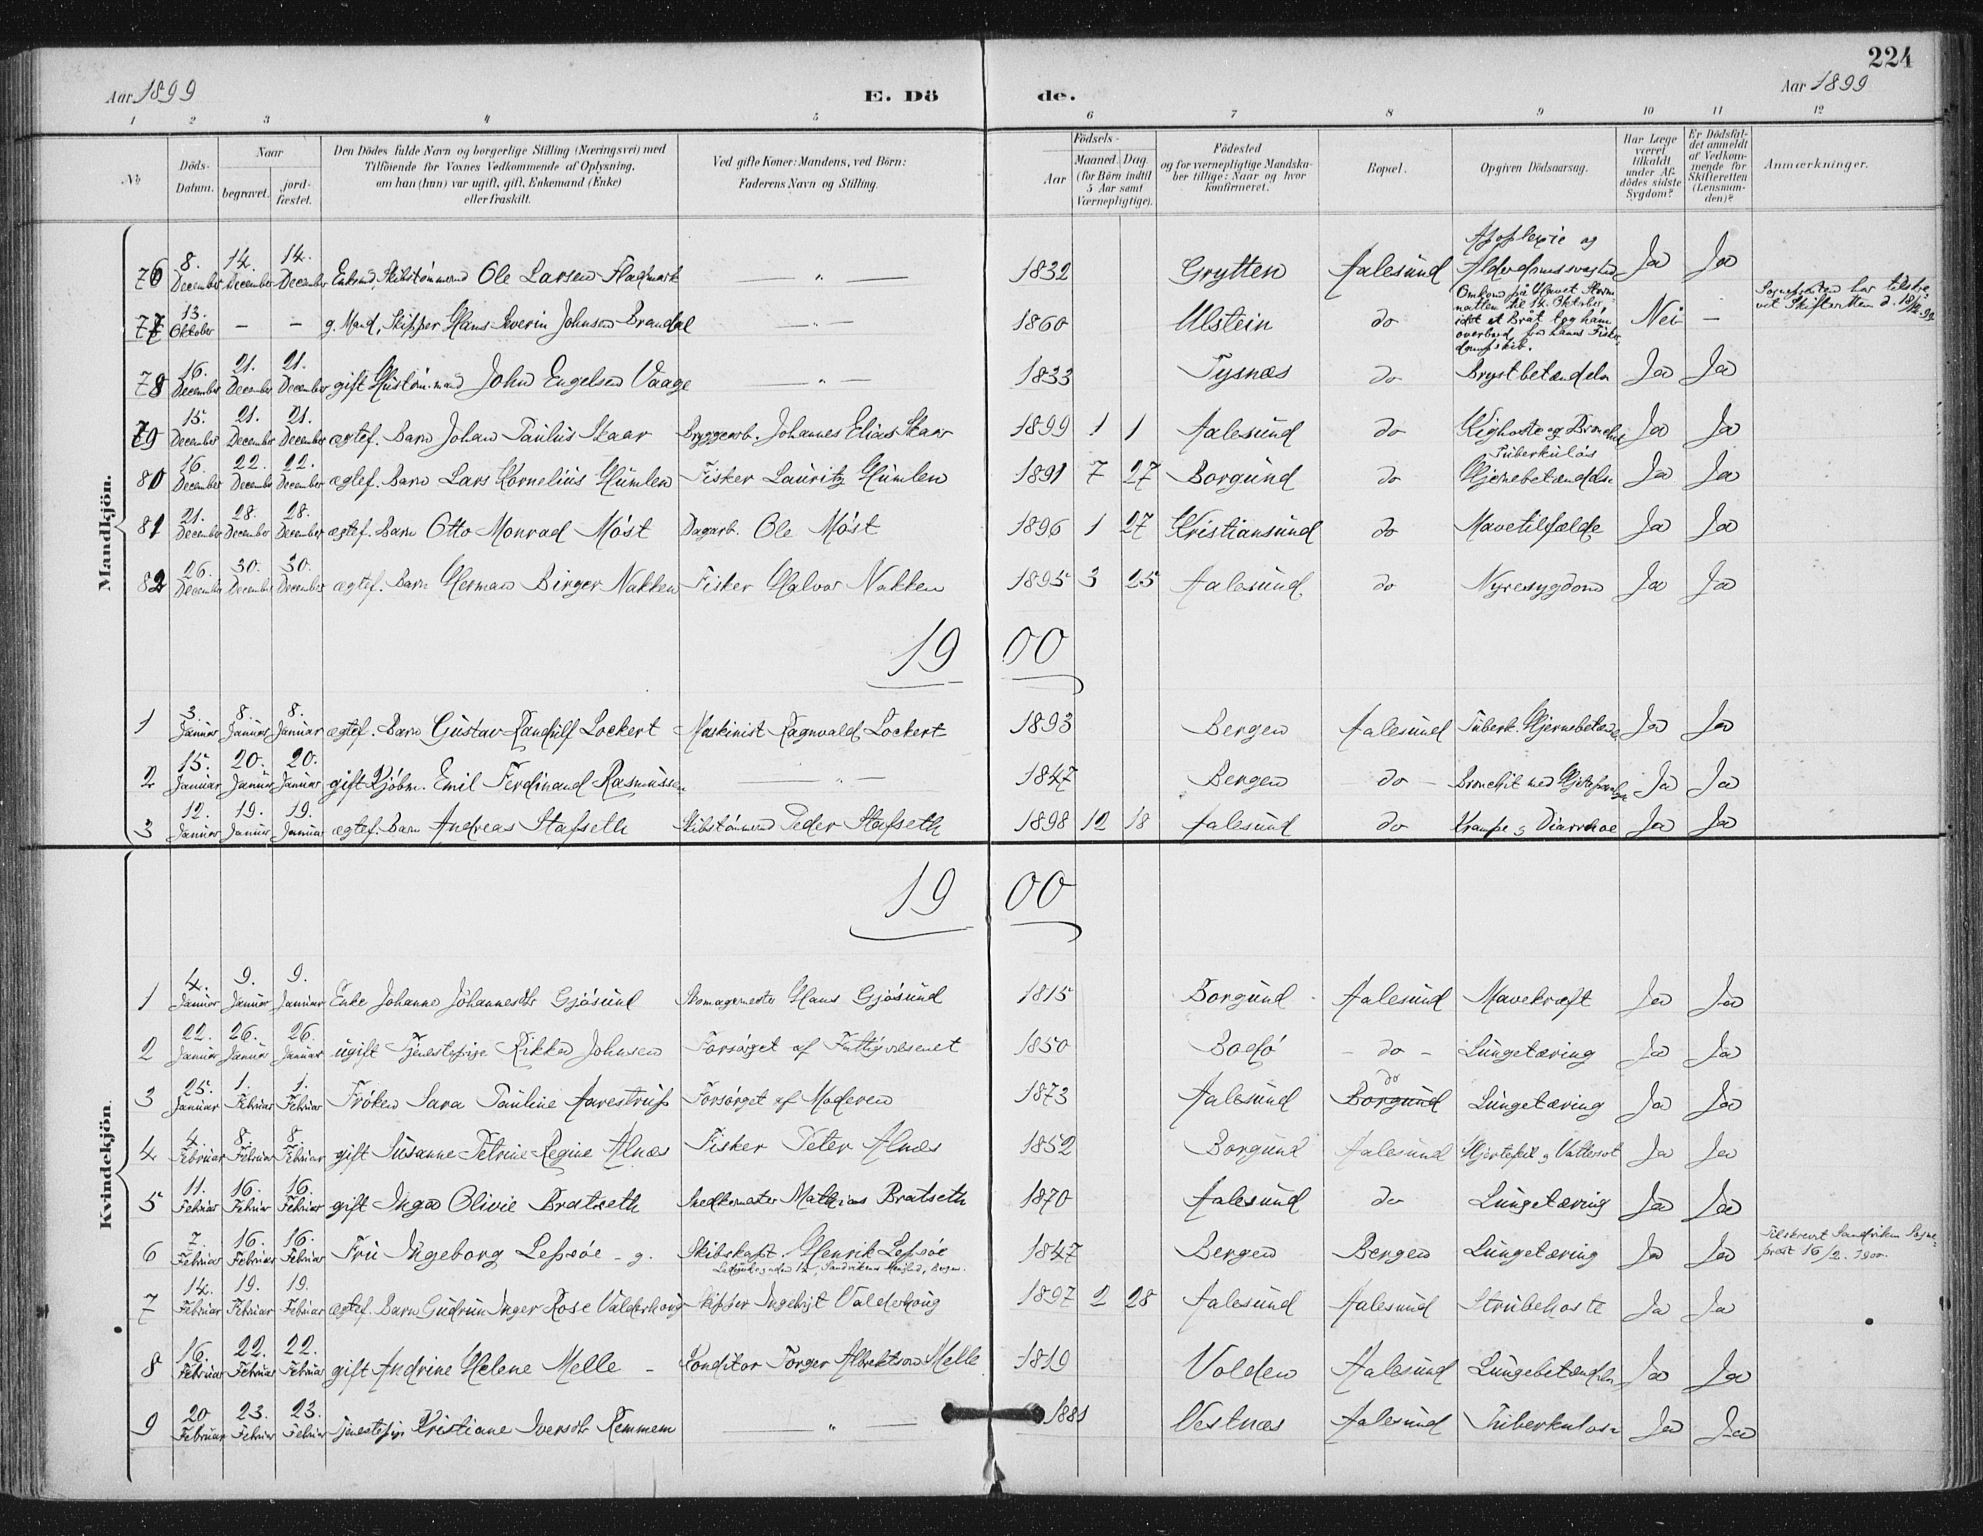 224
Aar 1899
E. Dö de.
Aar 1899
1 2 3 4 5 6 7 8 9 10 11 12
No
Döds-Datum.
Naar
begravet.
jord-fæstet.
Den Dödes fulde Navn og borgerlige Stilling (Næringsvei) med
Tilföiende for Voxnes Vedkommende af Oplysning,
om han (hun) var ugift, gift, Enkemand (Enke)
eller fraskilt.
Ved gifte Koner: Mandens, ved Börn:
Faderens Navn og Stilling.
Födsels-
Aar
Maaned. Dag.
(for Börn indtil
5 Aar samt
Værnepligtige).
Födested
og for værnepligtige Mandska-
ber tillige: Naar og hvor
konfirmeret.
Bopæl.
Opgiven Dödsaarsag.
Har Læge
været
tilkaldt
under Af-
dödes sidste
Sygdom?
Er Dödsfal-
det anmeldt
af Vedkom-
mende for
Skifteretten
(Lensman-
den)?
Anmærkninger.
Mandkjön.
76 8. December 14. December 14. December Enkmd. Skibstömmermd Ole Larsen Fladmark — „ — 1832 Grytten Aalesund Apoplexie og Alderdomssvaghed Ja Ja
77 13. Oktober — — g. Mand, Skipper Hans Severin Johnsen Brandal — „ — 1860 Ulstein do Omkom på Havet Storm-
natten til 14. Oktober,
idet et Bråt tog ham
overbord fra hans Fisker-
dampskib. Nei — Sognepresten har tilskre-
vet Skifteretten d. 18/12 99
78 16. December 21. December 21. December gift Hustöm.mand John Engelsen Vaage — „ — 1833 Tysnæs do Brystbetændelse Ja Ja
79 15. December 21. December 21. December ægtef. Barn Johan Paulus Skaar Bryggearb. Johannes Elias Skaar 1899 1 1 Aalesund do Kighoste og Bronchit Ja Ja
80 16. December 22. December 22. December ægtef. Barn Lars Kornelius Humlen Fisker Lauritz Humlen 1891 7 27 Borgund do Tuberkuløs Hjernebetændelse Ja Ja
81 21. December 28. December 28. December ægtef. Barn Otto Monrad Möst Dagarb. Ole Möst 1896 1 27 Kristiansund do Mavetilfælde Ja Ja
82 26. December 30. December 30. December ægtef. Barn Herman Birger Nakken Fisker Halvor Nakken 1895 3 25 Aalesund do Nyresygdom Ja Ja
19 00
1 3. Januar 8. Januar 8. Januar ægtef. Barn Gustav Randulf Lockert Maskinist Ragnvald Lockert 1893 Bergen Aalesund Tuberk. Hjernebetændelse Ja Ja
2 15. Januar 20. Januar 20. Januar gift Kjöbm. Emil Ferdinand Rasmussen — „ — 1847 Bergen do — Bronchit med Ja Ja
3 12. Januar 19. Januar 19. Januar ægtef. Barn Andreas Stafseth Skibstömmermd Peder Stafseth 1898 12 18 Aalesund do Krampe og Diarrhoe Ja Ja
Kvindekjön.
19 00
1 4. Januar 9. Januar 9. Januar Enke Johanne Johannesdtr Gjösund Skomagermester Hans Gjösund 1815 Borgund Aalesund Mavekræft Ja Ja
2 22. Januar 26. Januar 26. Januar ugift Tjenestepige Rikka Johnsen Forsörget af Fattigvæsenet 1850 Bodö — do — Lungetæring Ja Ja
3 25. Januar 1. Februar 1. Februar Fröken Sara Pauline Aarestrup Forsörget af Moderen 1873 Aalesund do Borgund Lungetæring Ja Ja
4 4. Februar 8. Februar 8. Februar gift Susanne Petrine Regine Alnæs Fisker Peter Alnæs 1852 Borgund Aalesund Hjertefeil og Vattersot Ja Ja
5 11. Februar 16. Februar 16. Februar gift Inga Olivie Bratseth Snedkermester Mathias Bratseth 1870 Aalesund do Lungetæring Ja Ja
6 7. Februar 16. Februar 16. Februar Fru Ingeborg Lepsöe - g. Skibskapt. Henrik Lepsöe
Sandvikens Menighed, Bergen. 1847 Bergen Bergen Lungetæring Ja Ja Tilskrevet Sandviken Sogne-
prest 16/2. 1900.
7 14. Februar 19. Februar 19. Februar ægtef. Barn Gudrun Inger Rose Valderhoug Skipper Ingebrigt Valderhoug 1897 2 28 Aalesund Aalesund Strubehoste Ja Ja
8 16. Februar 22. Februar 22. Februar gift Andrine Helene Melle — Konditor Torger Albrektsen Melle 1819 Volden Aalesund Lungebetændelse Ja Ja
9 20 Februar 23. Februar 23. Februar Tjenestepige Kristiane Iversdtr Remmem — „ — 1881 Vestnæs Aalesund Tuberkulose Ja Ja